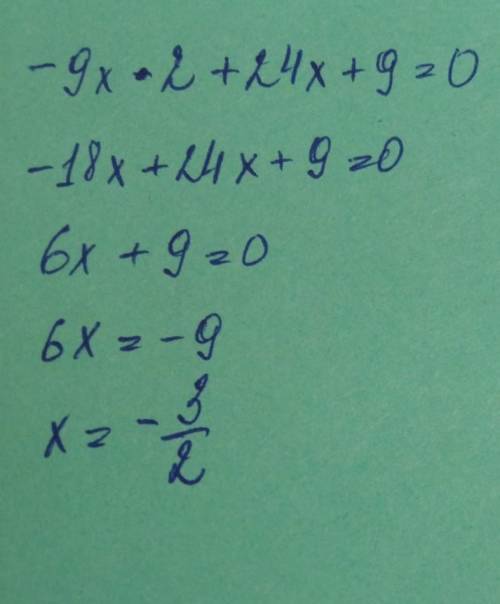 -9x·2+24x+9=0
-18x+24x+9=0
6x+9=0
6x=-9
x=-3/2